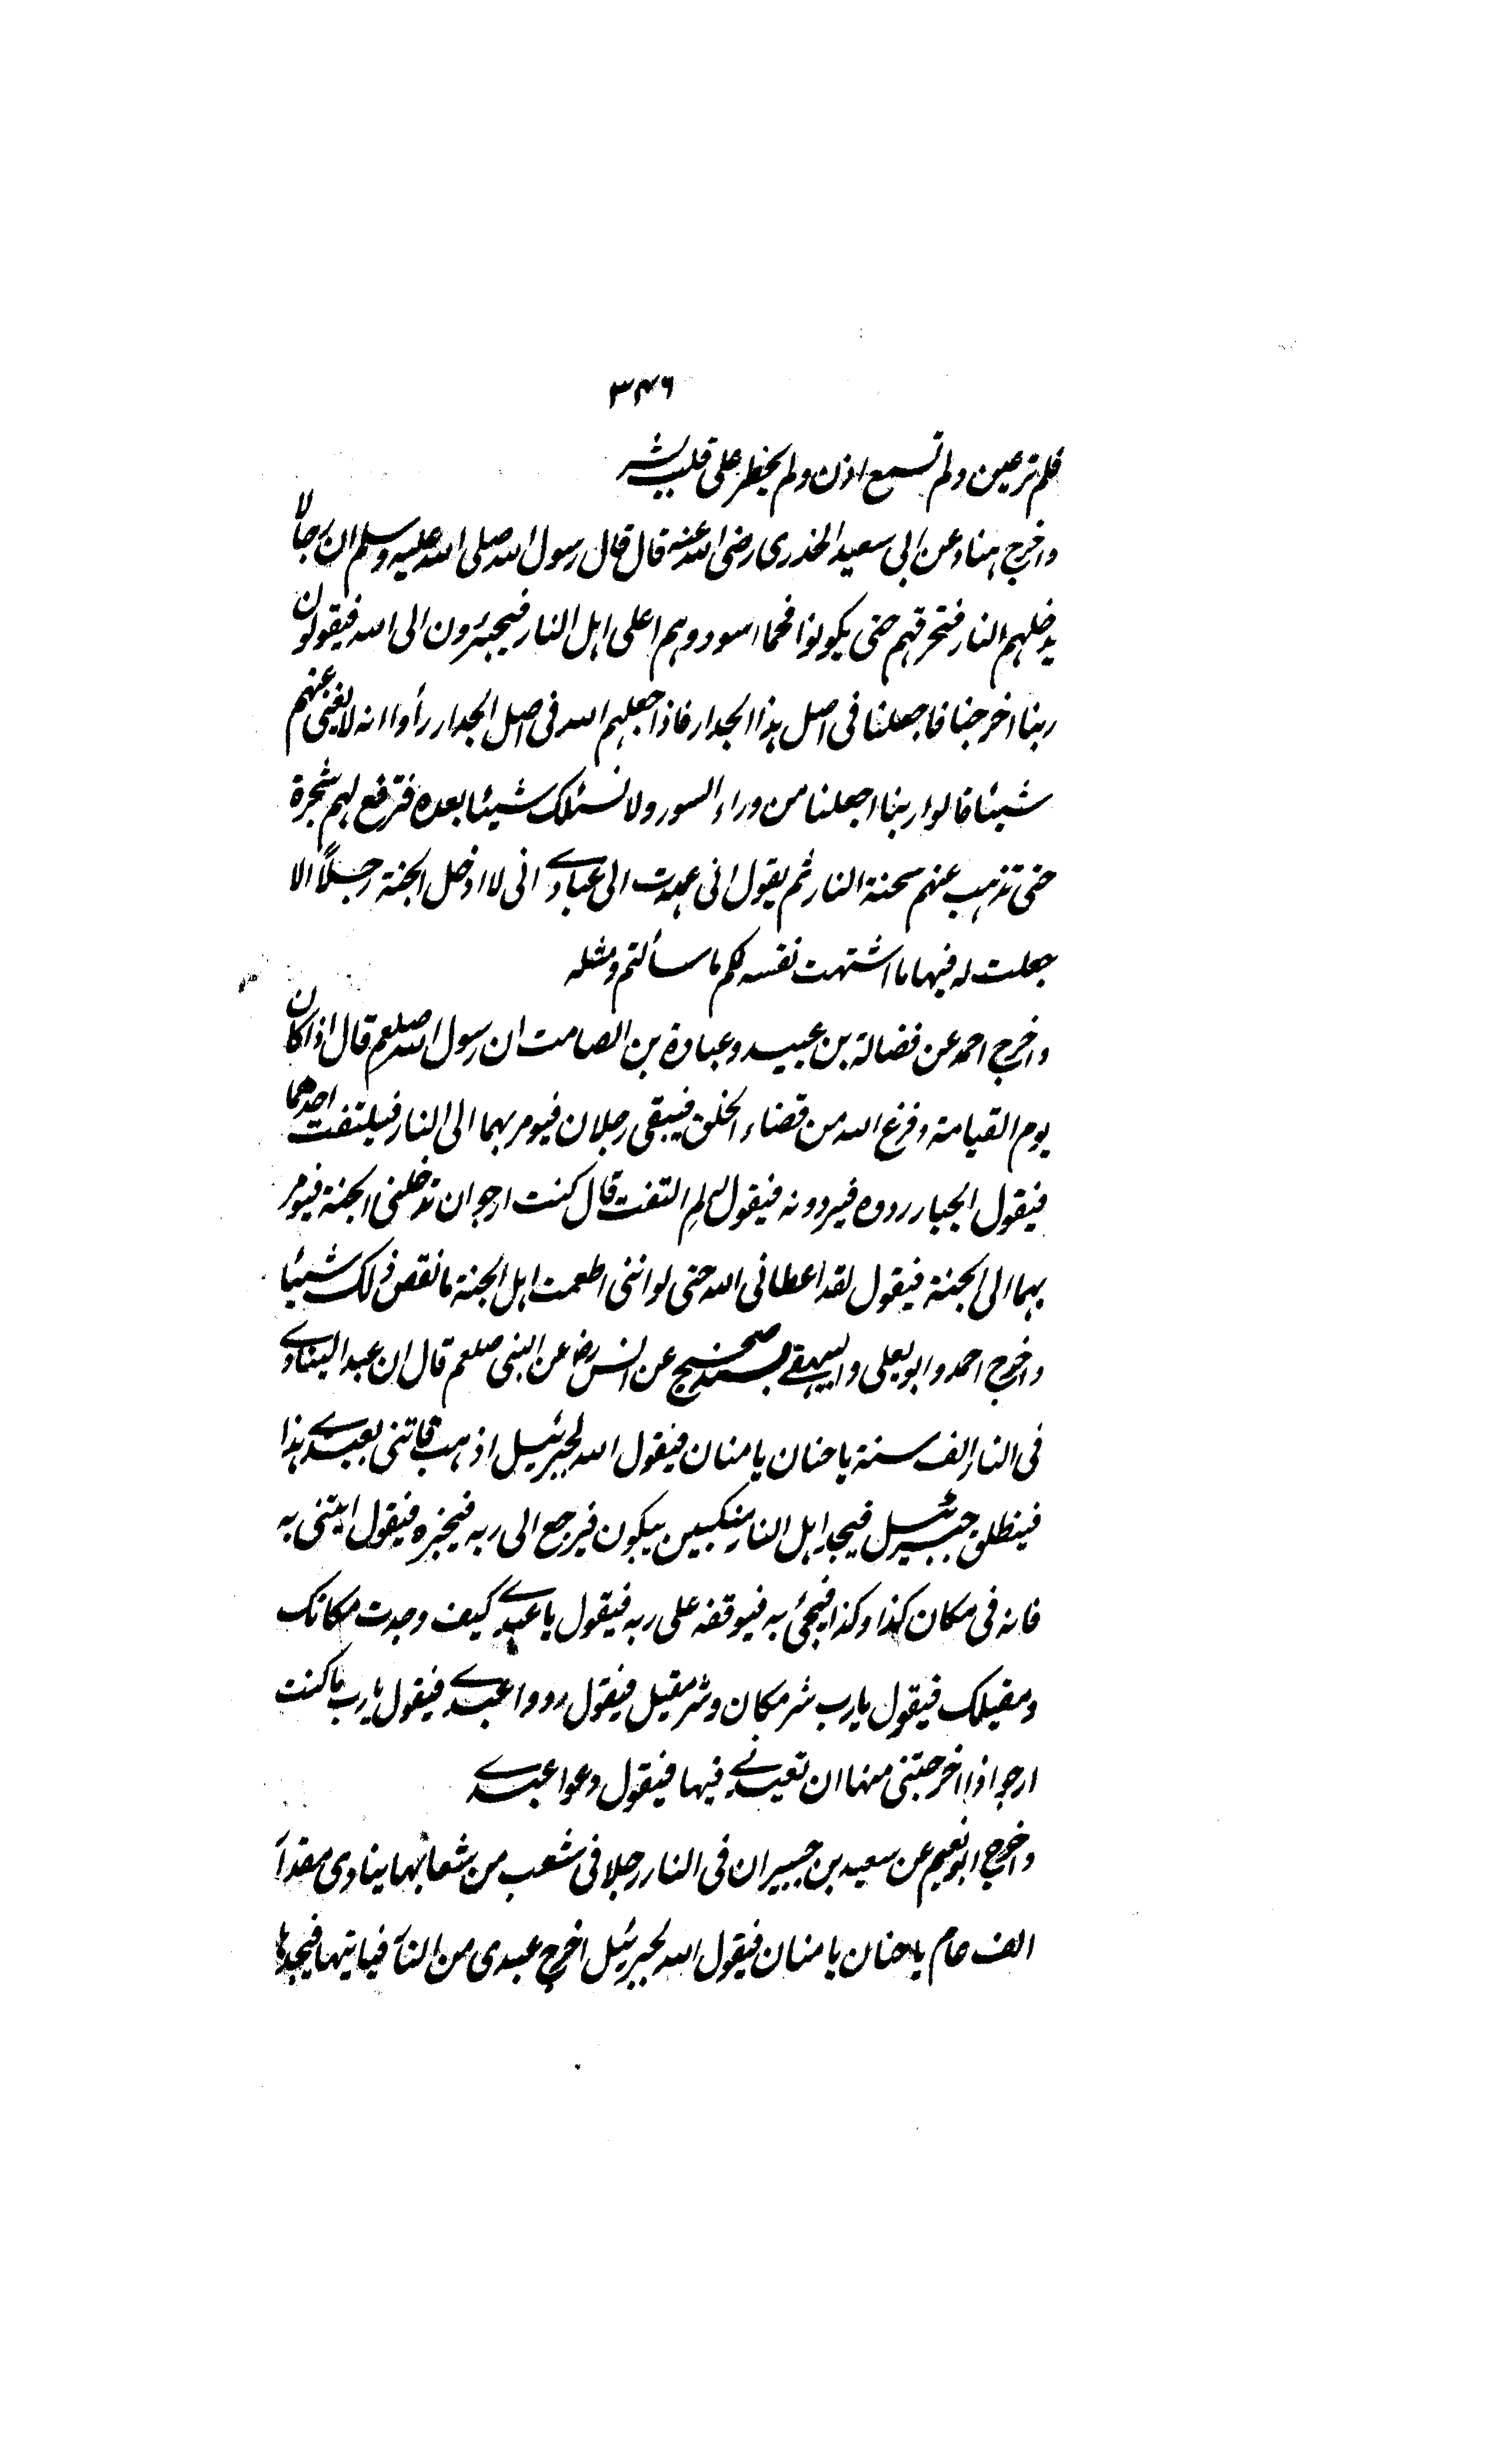 ۳۴۶
فلم ترعين ولم تسمع اذن ولم يخطر على قلب بشر
واخرج هناد عن ابى سعيد الخدرى رضى الله عنه قال قال رسول الله صلى الله عليه وسلم ان رجالا
يدخلهم النار فتحرقهم حتى يكونوا فحما اسود وهم اعلى اهل النار فيجئرون الى الله فيقولون
ربنا اخرجنا فاجعلنا فى اصل هذا الجدار فاذا جعلهم الله فى اصل الجدار رأوا انه لا يغنى عنهم
شيئا قالوا ربنا اجعلنا من وراء السور ولا نسئلك شيئا بعده فترفع لهم شجرة
حتى تذهب عنهم سحنة النار ثم يقول انى عهدت الى عبادے انى لا ادخل الجنة رجلاً الا
جعلت له فيها ما اشتهت نفسه لكم ما سألتم ومثله
واخرج احمد عن فضالة بن عبيد وعبادة بن الصامت ان رسول الله صلعم قال اذا كان
يوم القيامة وفرغ الله من قضاء الخلق فيبقى رجلان فيومر بهما الى النار فيلتفت احدهما
فيقول الجبار ردوه فيردونه فيقول له لم التفت قال كنت ارجو ان تدخلنى الجنة فيومر
بهما الى الجنة فيقول لقد اعطانى الله حتى لو اننى اطعمت اهل الجنة ما نقص ذلك شيئا
واخرج احمد وابو يعلى والبيهقے بسند صحيح عن انس رض عن النبى صلعم قال ان عبدا لينادے
فى النار الف سنة يا حنان يا منان فيقول الله لجبرئيل اذهب فاتنى بعبدے هذا
فينطلق جبرئيل فيجد اهل النار منكبين يبكون فيرجع الى ربه فيخبره فيقول ايتنى به
فانه فى مكان كذا وكذا فيجئ به فيوقفه على ربه فيقول يا عبدے كيف وجدت مكانك
ومقيلك فيقول يا رب شر مكان وشر مقيل فيقول ردوا عبدے فيقول يا رب ما كنت
ارجو اذا اخرجتنى منها ان تعيدنے فيها فيقول دعوا عبدے
واخرج ابو نعيم عن سعيد بن جبير ان فى النار رجلا فى شعب من شعابها ينادى مقدار
الف عام يا حنان يا منان فيقول الله لجبرئيل اخرج عبدى من النار فياتيها فيجدها